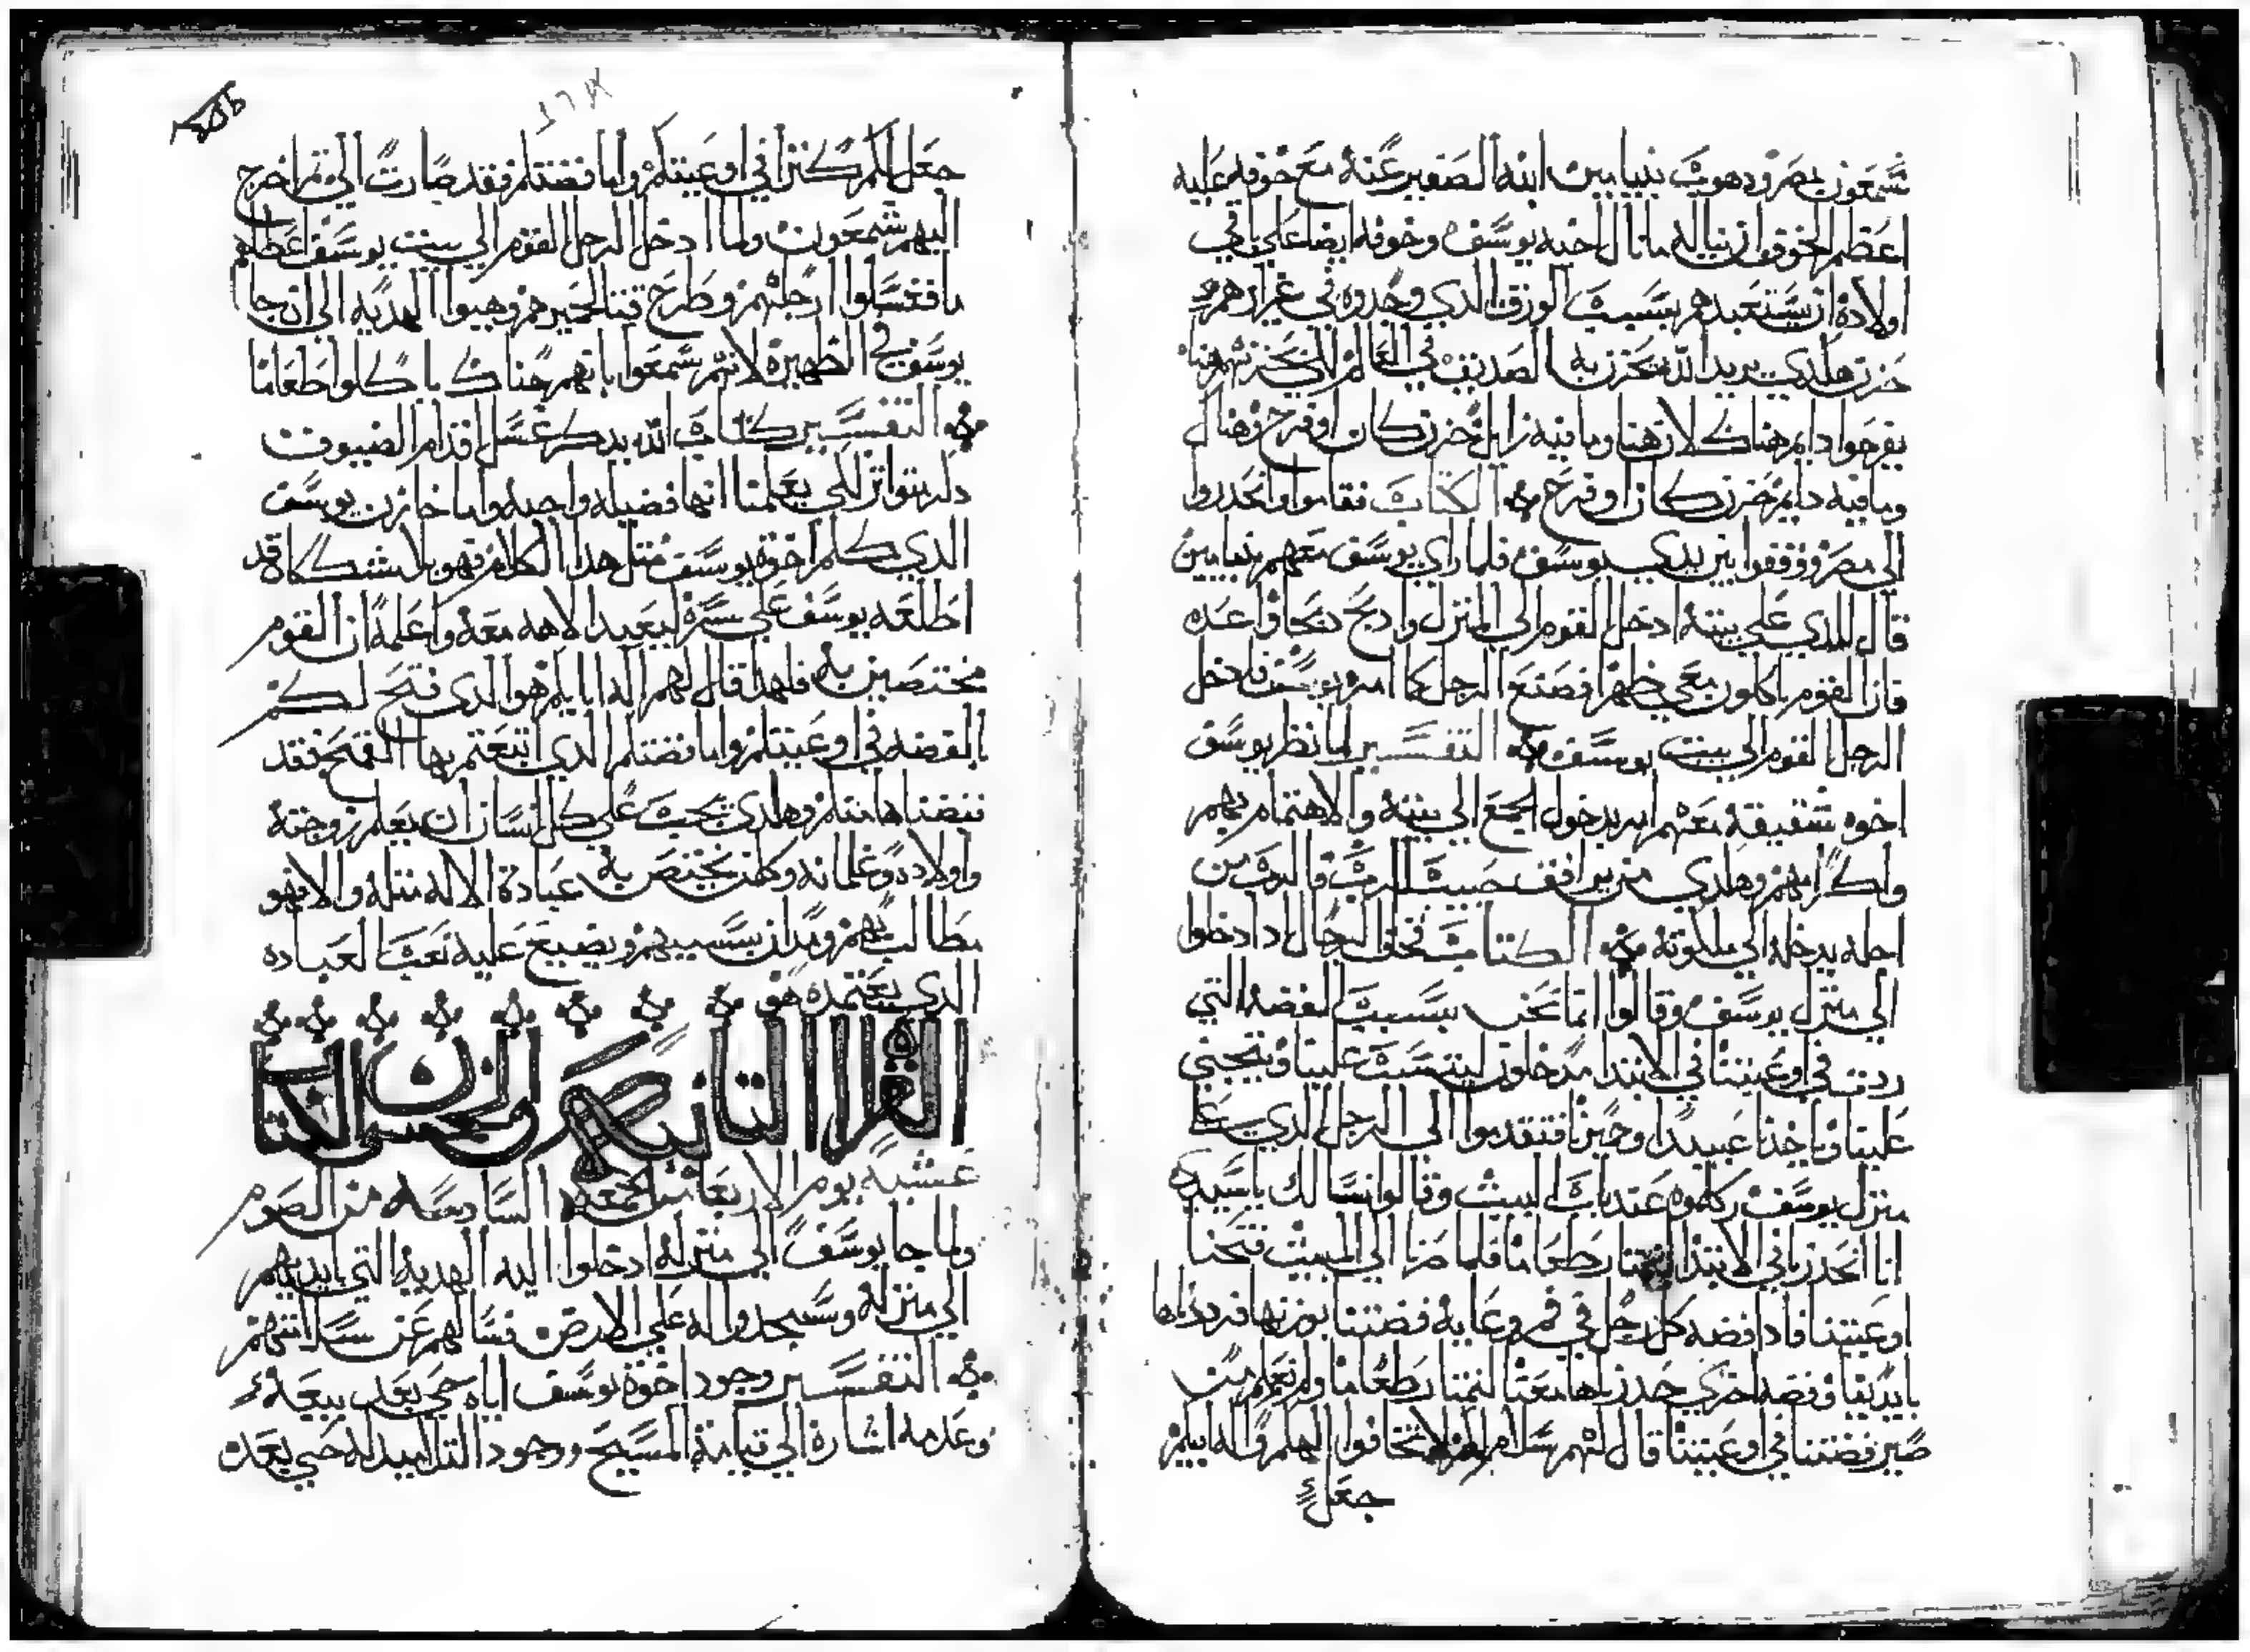 شمعون بمصر ودهوب بنيامين ابنه الصغير عنه مع خوفه عليه
اعظم الخوف ان يناله ما نال اخيه يوسف وخوفه ايضا علي باقي
اولاده ان يستعبدهم بسبب الورق الدي وجدوه في غرايرهم
حزن هلدي يريد الله يحزن به الصديق في العالم
يفرحوا دايم هناك لان هنا وما فيه زايل حزن كان او فرح وهناك
وما فيه دايم حزن كان او فرح الكتاب فقاموا وانحدروا
الي مصر ووقفوا بين يدي يوسف فلما راي يوسف معهم بنيامين
قال للدي علي بيته ادخل القوم الي المنزل وادبح دبحا واعده
فان القوم ياكلون معي ظهرا فصنع الرجل كما امره يوسف فادخل
الرجل القوم الي بيت يوسف التفسير لما نظر يوسف
اخوه شقيقه معهم امر بدخول الجمع الي بيته والاهتمام بهم
واكرامهم وهلدي من يوافق حبيب الرب فالرب من
اجله يدخله الي ملكوته الكتاب فخاف الرجال اد ادخلوا
الي منزل يوسف وقالوا انما نحن بسبب الفضه التي
ردت في اوعيتنا في الابتدا مدخلون ليتسبب علينا ويتجني
علينا وياخدنا عبيدا وحميرنا فتقدموا الي الرجل الدي علي
منزل يوسف وكلموه عند باب البيت وقالوا نسالك ياسيدي
انا انحدرنا في الابتدا لنمتار طعاما فلما صرنا الي المبيت فتحنا
اوعيتنا فادا فضه كل رجل في فم وعايه فضتنا بوزنها فرددناها
بايدينا وفضه اخري حدرناها معنا لنمتار طعاما ولم نعلم من
صير فضتنا في اوعيتنا قال لهم سلام لكم لا تخافوا الهكم واله ابايكم
جعل
جعل لكم كنزا في اوعيتكم واما فضتكم فقد صارت الي ثم اخرج
اليهم شمعون ولما ادخل الرجل القوم الي بيت يوسف اعطاهم
ما فغسلوا ارجلهم وطرح قتا لحميرهم وهيوا الهديه الي ان جا
يوسف في الظهيره لانهم سمعوا بانهم هناك ياكلوا طعاما
التفسير كتاب الله يدكر غسل اقدام الضيوف
دكر متواتر لكي يعلمنا انها فضيله واجبه واما خازن يوسف
الدي كلم اخوه يوسف متل هدا الكلام فهو بلا شك كان قد
اطلعه يوسف علي سره ليعبد الاهه معه واعلمه ان القوم
مختصين به فلهدا قال لهم اله ابايكم هو الدي فتح لكم
بالفضه في اوعيتكم واما فضتكم الدي ابتعتم بها القمح فقد
قبضناها منكم وهلدي يجب علي كل انسان ان يعلم زوجته
واولاده وغلمانه وكلمن يختص به عبادة الاله متله والا فهو
مطالب بهم ومدان بسببهم ويضيع عليه تعب العباده
الدي يعتمده هو
القراه التانيه والخمسون الكتاب
عشية يوم الاربعا من الجمعه السادسه من الصوم
ولما جا يوسف الي منزله ادخلوا اليه الهديه التي بايديهم
الي منزله وسجدوا له علي الارض فسالهم عن سلامتهم
التفسير وجود اخوة يوسف اياه حي بعد بيعه
وعدمه اشاره الي قيامة المسيح ووجود التلاميد له حي بعد